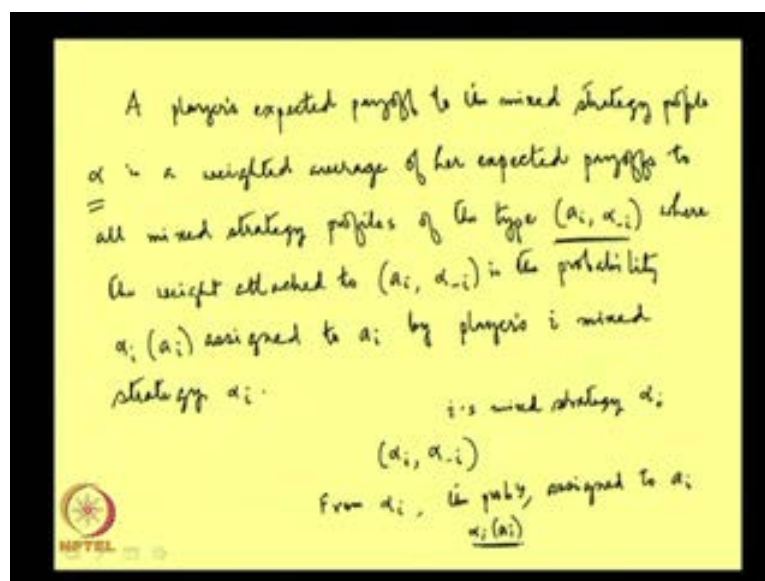 A player's expected payoff to the mixed strategy profile
α is a weighted average of her expected payoffs to
all mixed strategy profiles of the type (aᵢ, α₋ᵢ) where
the weight attached to (aᵢ, α₋ᵢ) is the probability
αᵢ (aᵢ) assigned to aᵢ by player's i mixed
strategy αᵢ.
i's mixed strategy αᵢ
(αᵢ, α₋ᵢ)
From αᵢ, the prob'y, assigned to aᵢ
αᵢ(aᵢ)
NPTEL